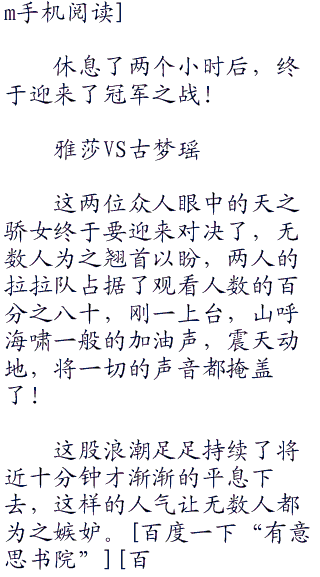 m手机阅读]
休息了两个小时后，终
于迎来了冠军之战！
雅莎VS古梦瑶
这两位众人眼中的天之
骄女终于要迎来对决了，无
数人为之翘首以盼，两人的
拉拉队占据了观看人数的百
分之八十，刚一上台，山呼
海啸一般的加油声，震天动
地，将一切的声音都掩盖
了！
这股浪潮足足持续了将
近十分钟才渐渐的平息下
去，这样的人气让无数人都
为之嫉妒。[百度一下“有意
思书院”][百